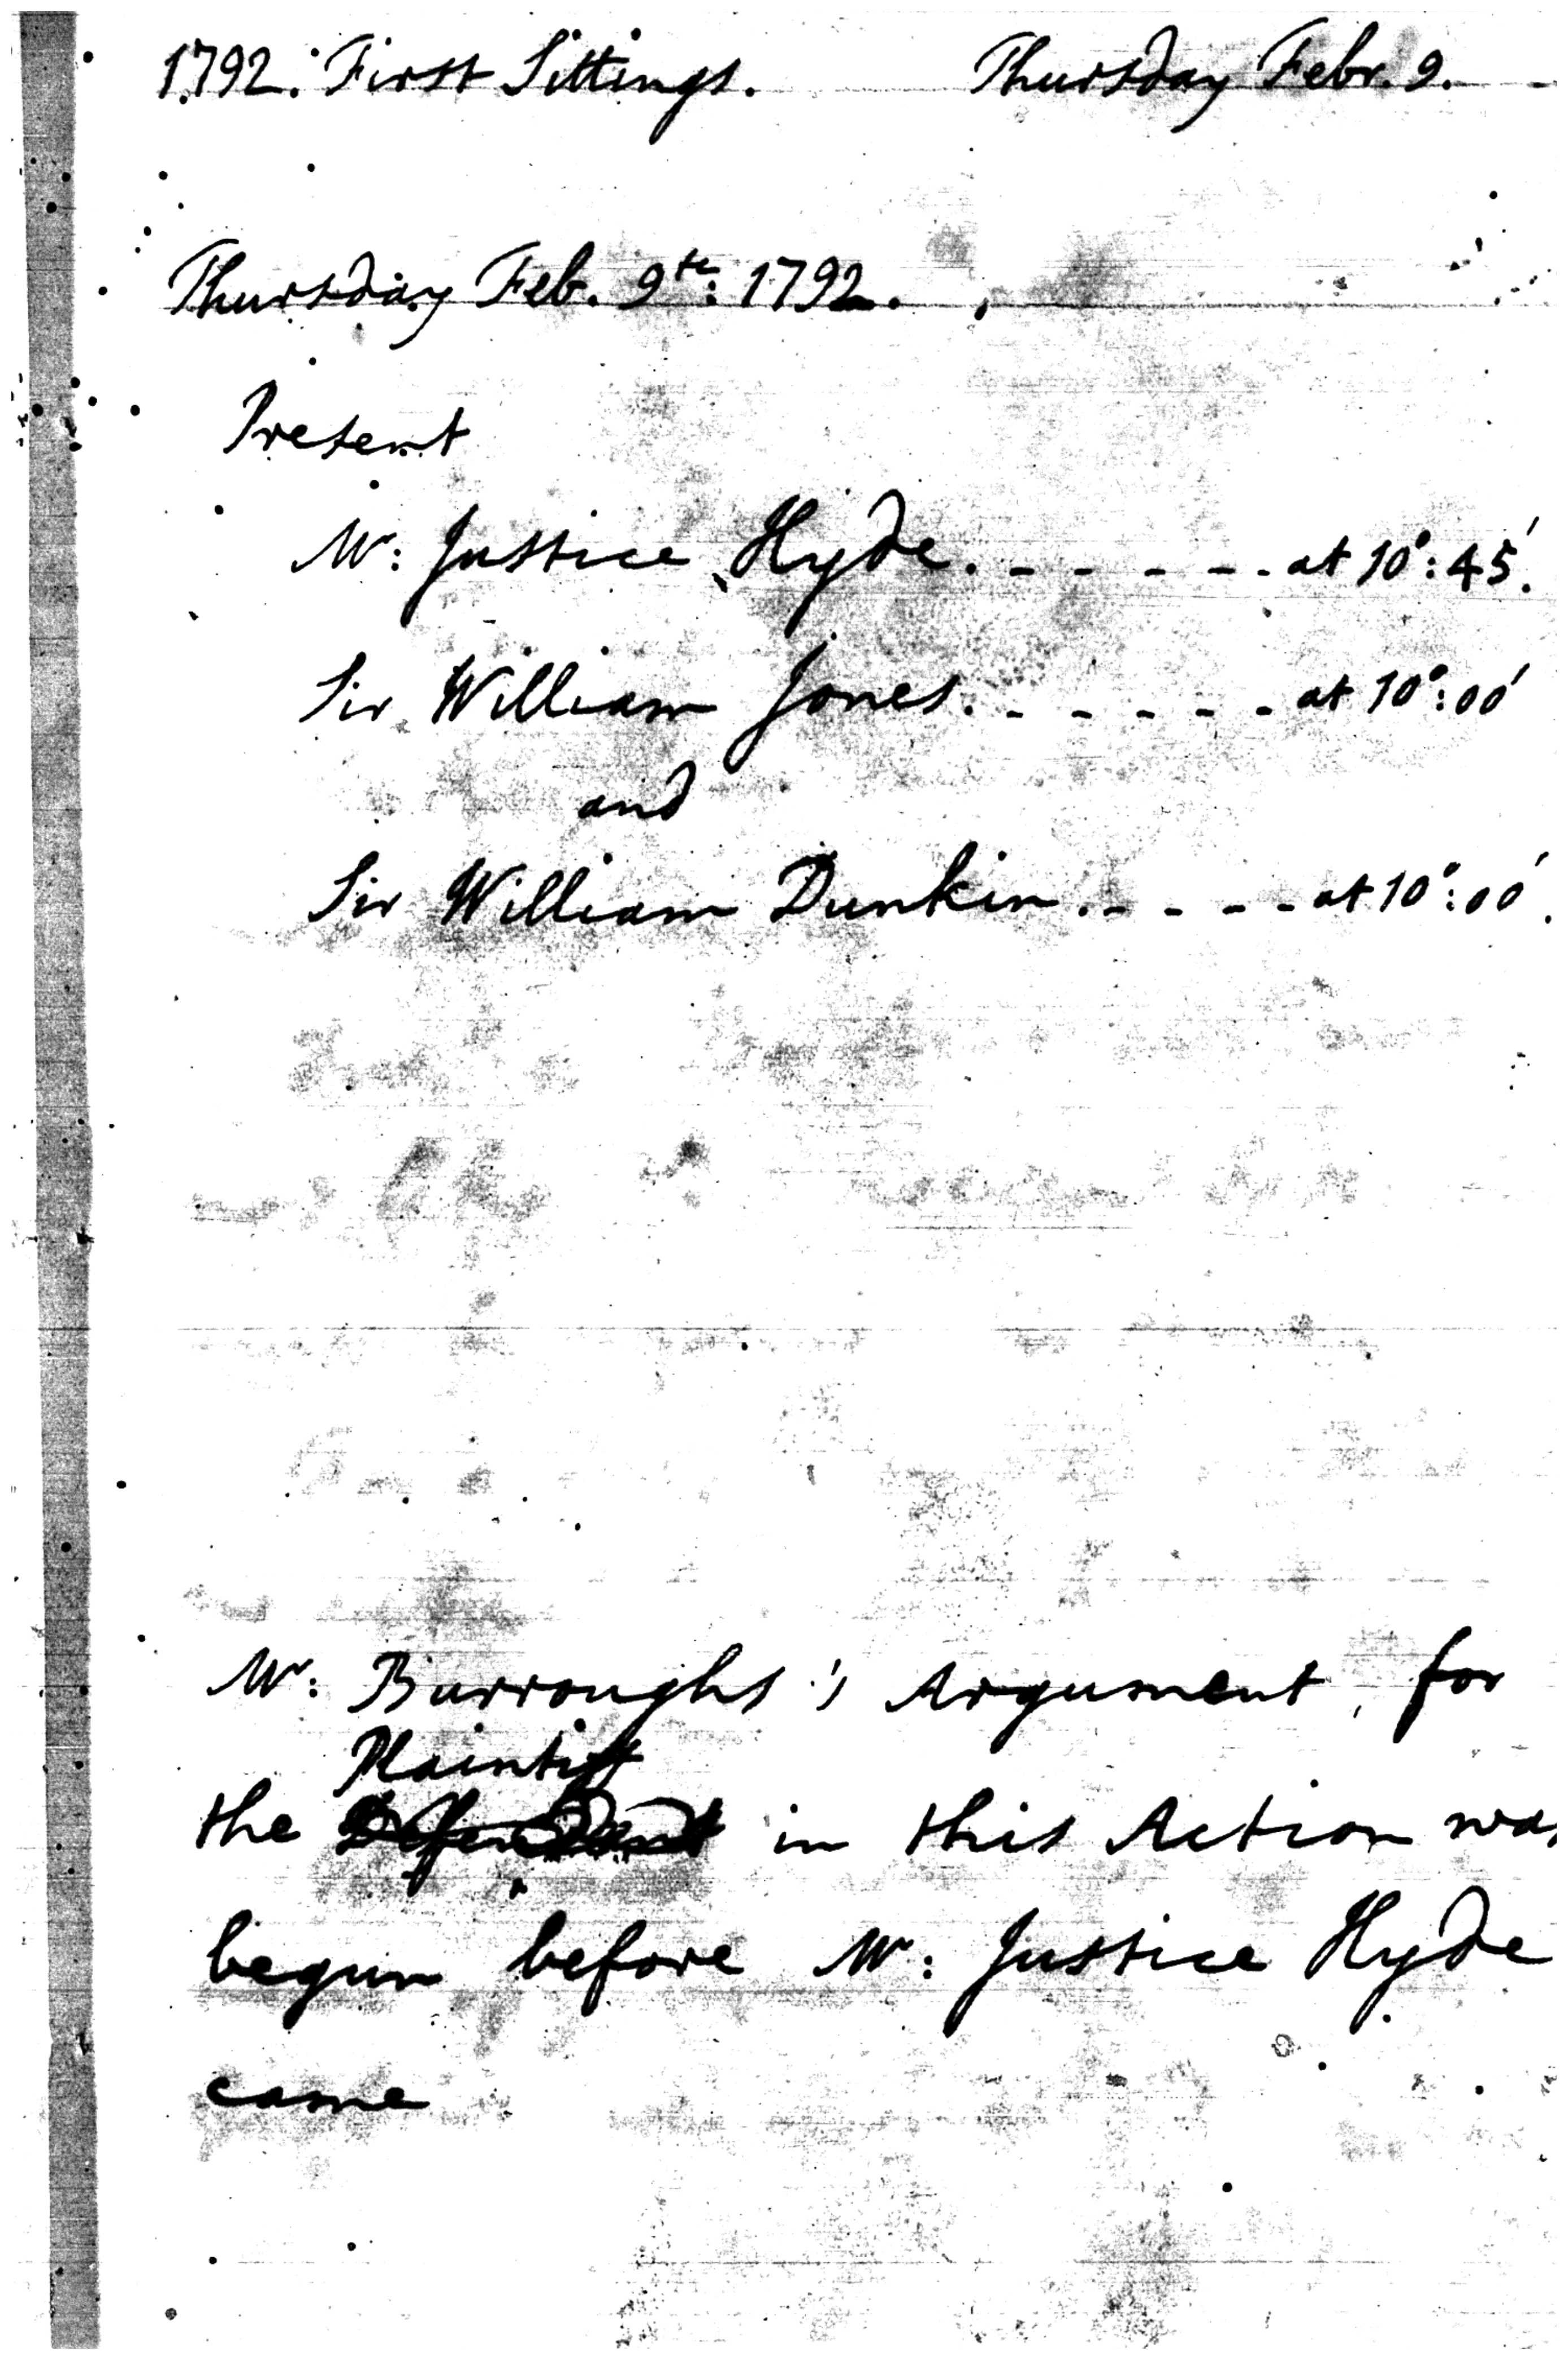 1792. First Sittings. Thursday Febr. 9.
Thursday Feb. 9th: 1792.
Present
Mr: Justice Hyde. - - - - - - at 10°: 45'.
Sir William Jones. - - - - - - at 10°: 00'
and
Sir William Dunkin. - - - - at 10°: 00'.
Mr: Burroughs's Argument, for
Plaintiff
the Defendant in this Action was
begun before Mr: Justice Hyde
came